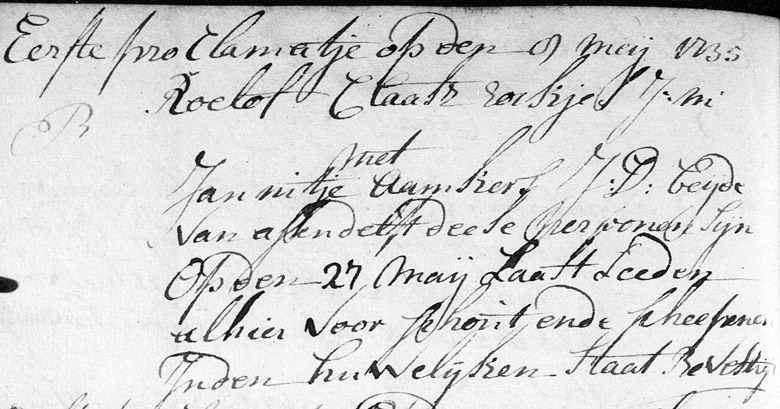 Eerste proClamatje op den 8 meij 1735
Roelof Claasz J:m
B
met
Jannitje J:D: beijde
van assendelft deese persoonen sijn
Op den 27 Maij Laast Leeden
alhier voor schout ende scheepenen
Inden huwelijken Staat Bevestig